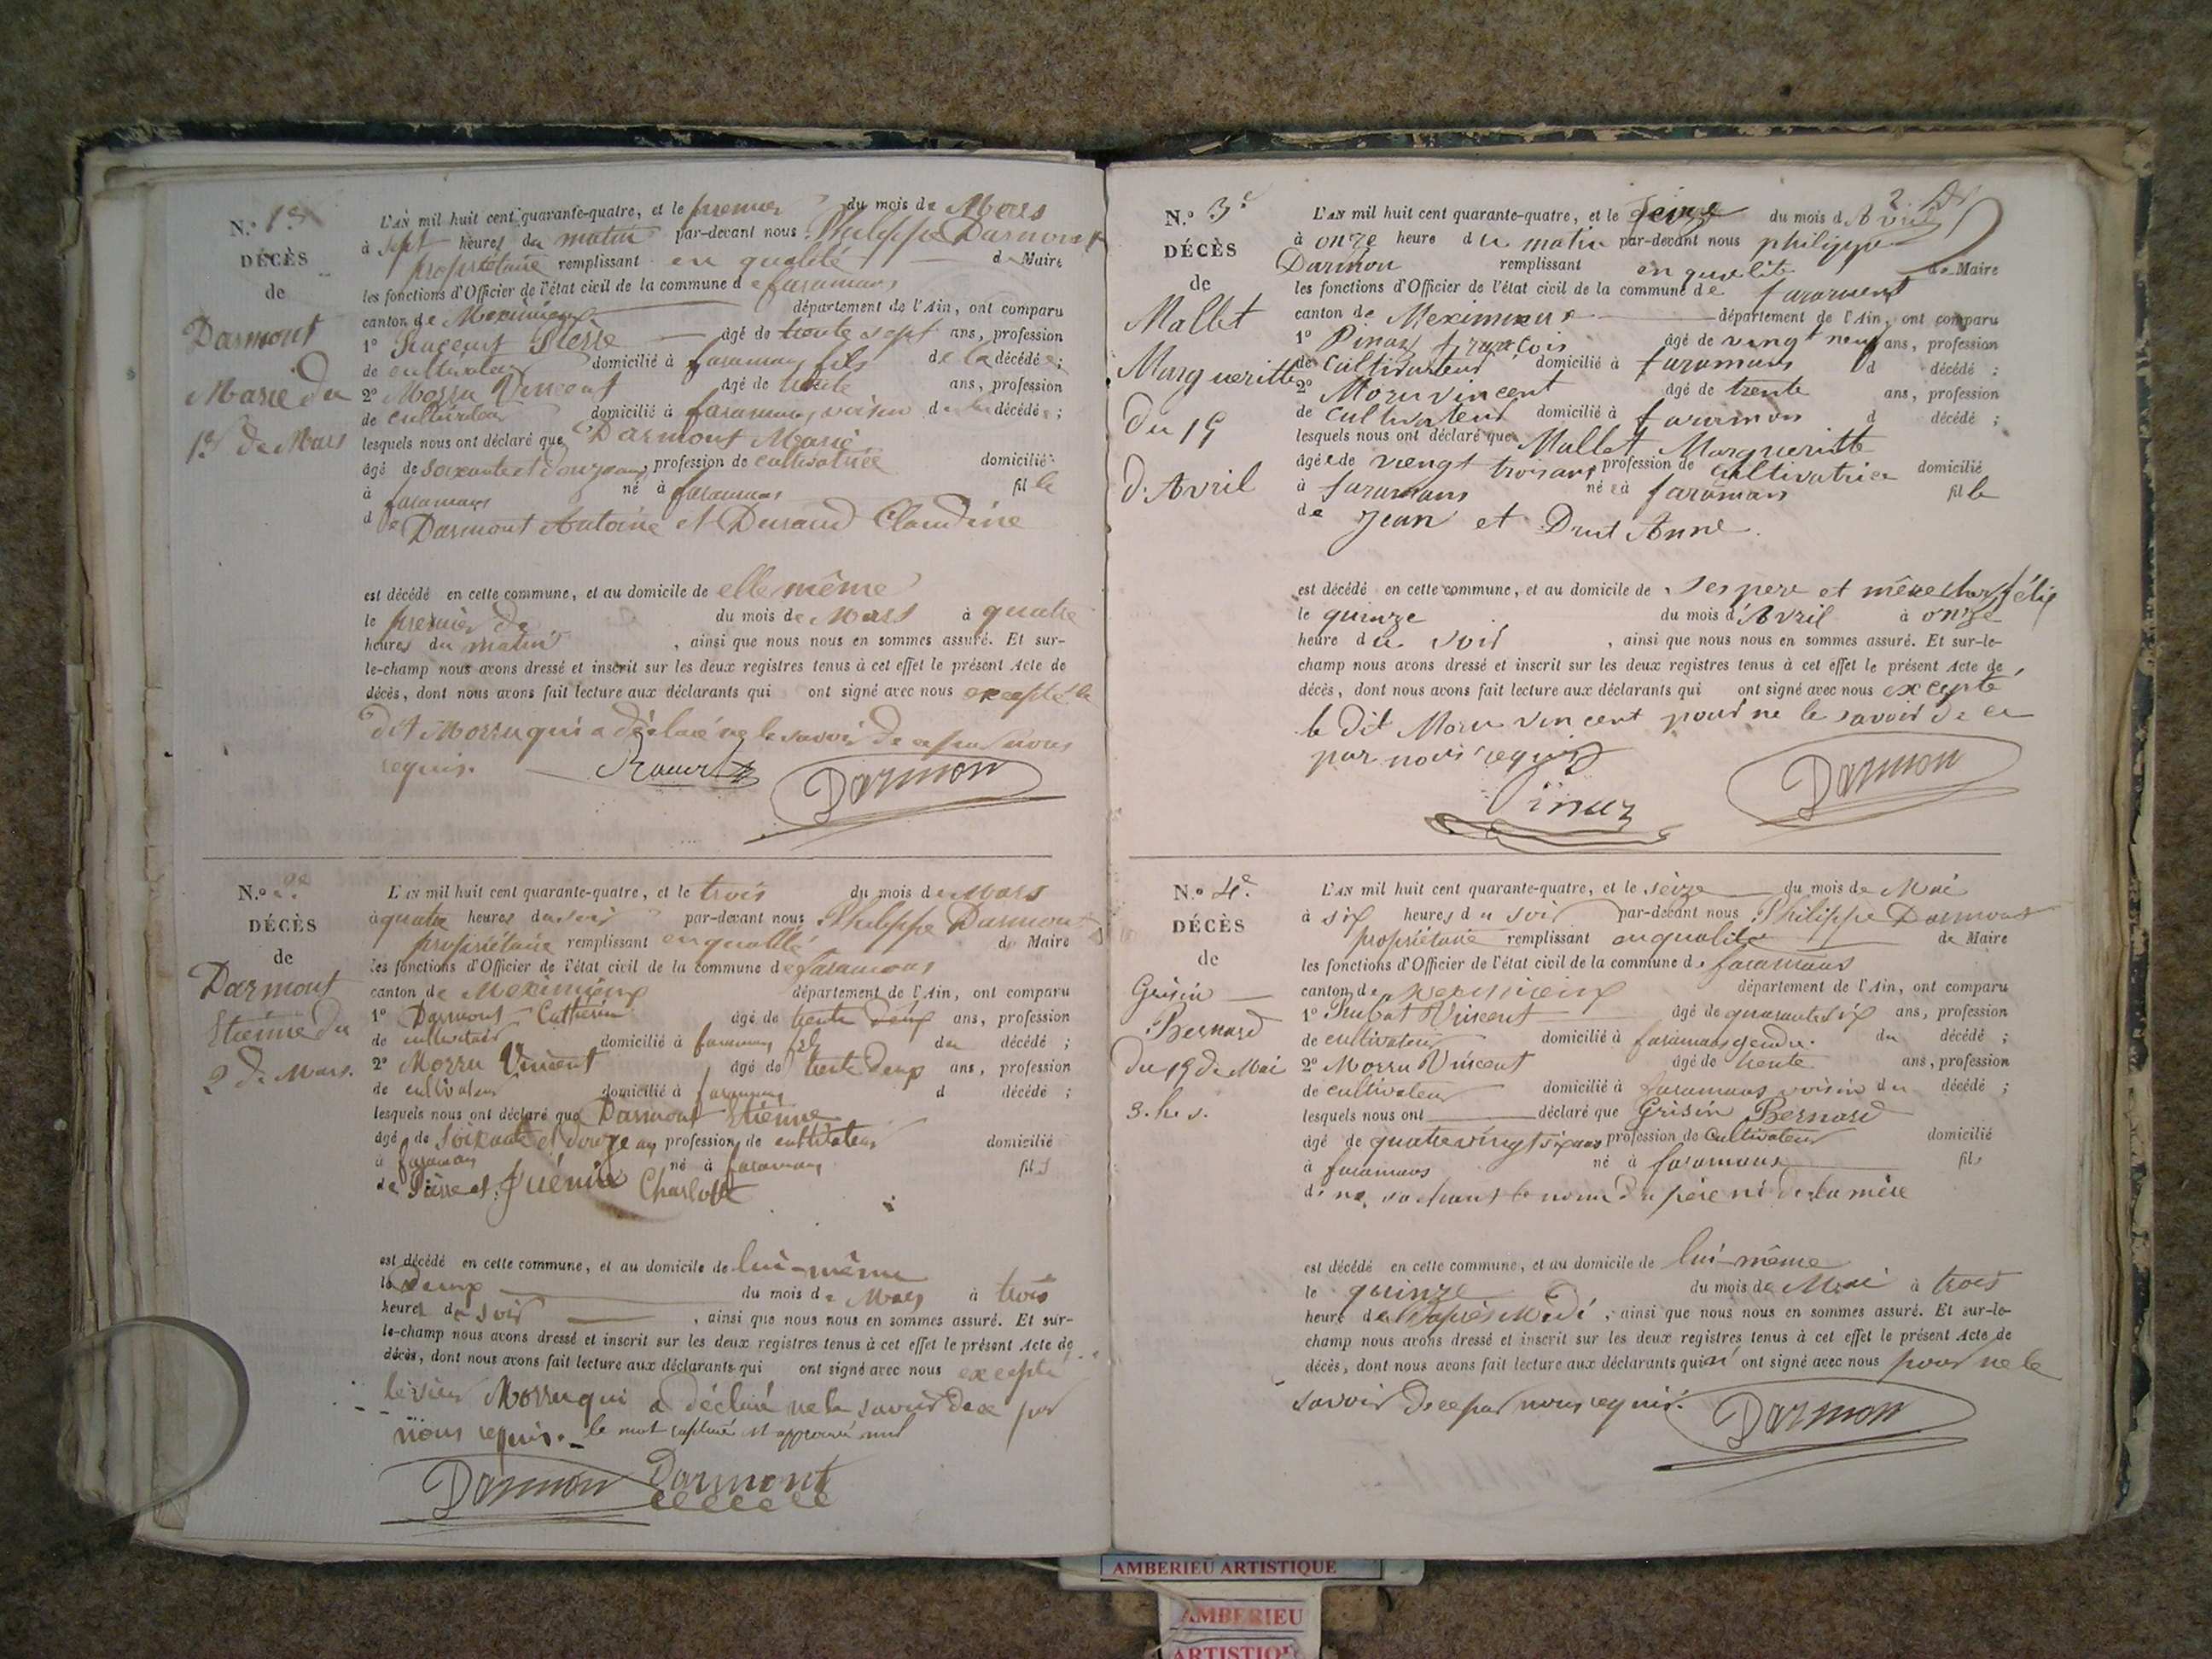 N.o 1er
DÉCÈS
de
Darmont
Marie du
1er de Mars
L'AN mil huit cent quarante-quatre, et le premier du mois de Mars
à sept heures du matin par-devant nous Philippe Darmont
propriétaire remplissant en qualité de Maire
les fonctions d'Officier de l'état civil de la commune de faramans
canton de Meximieux département de l'Ain, ont comparu
1o Pierre âgé de trente sept ans, profession
de cultivateur domicilié à faramans fils de la décédée;
2o Morru Vincent âgé de trente ans, profession
de cultivateur domicilié à faramans voisin de la décédée;
lesquels nous ont déclaré que Darmont Marie
âgé de soixante et douze ans, profession de cultivatrice domicilié
à faramans né à faramans fille
de Darmont Antoine et Durand Claudine
est décédé en cette commune, et au domicile de elle même
le premier de du mois de Mars à quatre
heures du matin, ainsi que nous nous en sommes assuré. Et sur-
le-champ nous avons dressé et inscrit sur les deux registres tenus à cet effet le présent Acte de
décès, dont nous avons fait lecture aux déclarants qui ont signé avec nous excepté le
dit Morru qui a déclaré ne le savoir de ce par nous
requis.
Darmon
N.o 2e
DÉCÈS
de
Darmont
Etienne du
2 de Mars.
L'AN mil huit cent quarante-quatre, et le trois du mois de Mars
à quatre heures du soir par-devant nous Philippe Darmont
propriétaire remplissant en qualité de Maire
les fonctions d'Officier de l'état civil de la commune de faramans
canton de Meximieux département de l'Ain, ont comparu
1o Darmont Catherin âgé de trente deux ans, profession
de cultivateur domicilié à faramans fils du décédé;
2o Morru Vincent âgé de trente deux ans, profession
de cultivateur domicilié à faramans d décédé;
lesquels nous ont déclaré que Darmont Etienne
âgé de soixante et douze ans profession de cultivateur domicilié
à faramans né à faramans fils
de Pierre et Juénin Charlotte
est décédé en cette commune, et au domicile de lui-même
le deux du mois de Mars à trois
heures du soir, ainsi que nous nous en sommes assuré. Et sur-
le-champ nous avons dressé et inscrit sur les deux registres tenus à cet effet le présent Acte de
décès, dont nous avons fait lecture aux déclarants qui ont signé avec nous excepté
le sieur Morru qui a déclaré ne le savoir de ce par
nous requis. le mot et approuvé nul
Darmon Darmont
2
N.o 3e
DÉCÈS
de
Mallet
Margueritte
du 15
d'Avril
L'AN mil huit cent quarante-quatre, et le seize du mois d'Avril
à onze heure du matin par-devant nous philippe
Darmon remplissant en qualité de Maire
les fonctions d'Officier de l'état civil de la commune de faramens
canton de Meximieux département de l'Ain, ont comparu
1o Pinaz françois âgé de vingt neuf ans, profession
de Cultivateur domicilié à faramans d décédé;
2o Moru vincent âgé de trente ans, profession
de Cultivateur domicilié à faramans d décédé;
lesquels nous ont déclaré que Mallet Margueritte
âgée de viengt trois ans profession de cultivatrice domicilié
à faramans née à faramans fille
de Jean et Drut Anne.
est décédé en cette commune, et au domicile de ses pere et mère
le quinze du mois d'Avril à onze
heure du soir, ainsi que nous nous en sommes assuré. Et sur-le-
champ nous avons dressé et inscrit sur les deux registres tenus à cet effet le présent Acte de
décès, dont nous avons fait lecture aux déclarants qui ont signé avec nous excepté
le dit Moru vincent pour ne le savoir de ce
par nous requis
Pinaz Darmon
N.o 4e
DÉCÈS
de
Grisin
Bernard
du 15 de Mai
3. h. s.
L'AN mil huit cent quarante-quatre, et le seize du mois de Mai
à six heures du soir par-devant nous Philippe Darmont
propriétaire remplissant en qualité de Maire
les fonctions d'Officier de l'état civil de la commune de faramans
canton de Meximieux département de l'Ain, ont comparu
1o Vincent âgé de quarante six ans, profession
de cultivateur domicilié à faramans gendre du décédé;
2o Morru Vincent âgé de trente ans, profession
de cultivateur domicilié à faramans voisin du décédé;
lesquels nous ont déclaré que Grisin Bernard
âgé de quatre vingt six ans profession de Cultivateur domicilié
à faramans né à faramans fils
de ne sachant le nom du père ni de la mère
est décédé en cette commune, et au domicile de lui-même
le quinze du mois de Mai à trois
heure de l'après Midi, ainsi que nous nous en sommes assuré. Et sur-le-
champ nous avons dressé et inscrit sur les deux registres tenus à cet effet le présent Acte de
décès, dont nous avons fait lecture aux déclarants qui n'ont signé avec nous pour ne le
savoir de ce par nous requis.
Darmon
AMBERIEU ARTISTIQUE
AMBERIEU
ARTISTIQUE